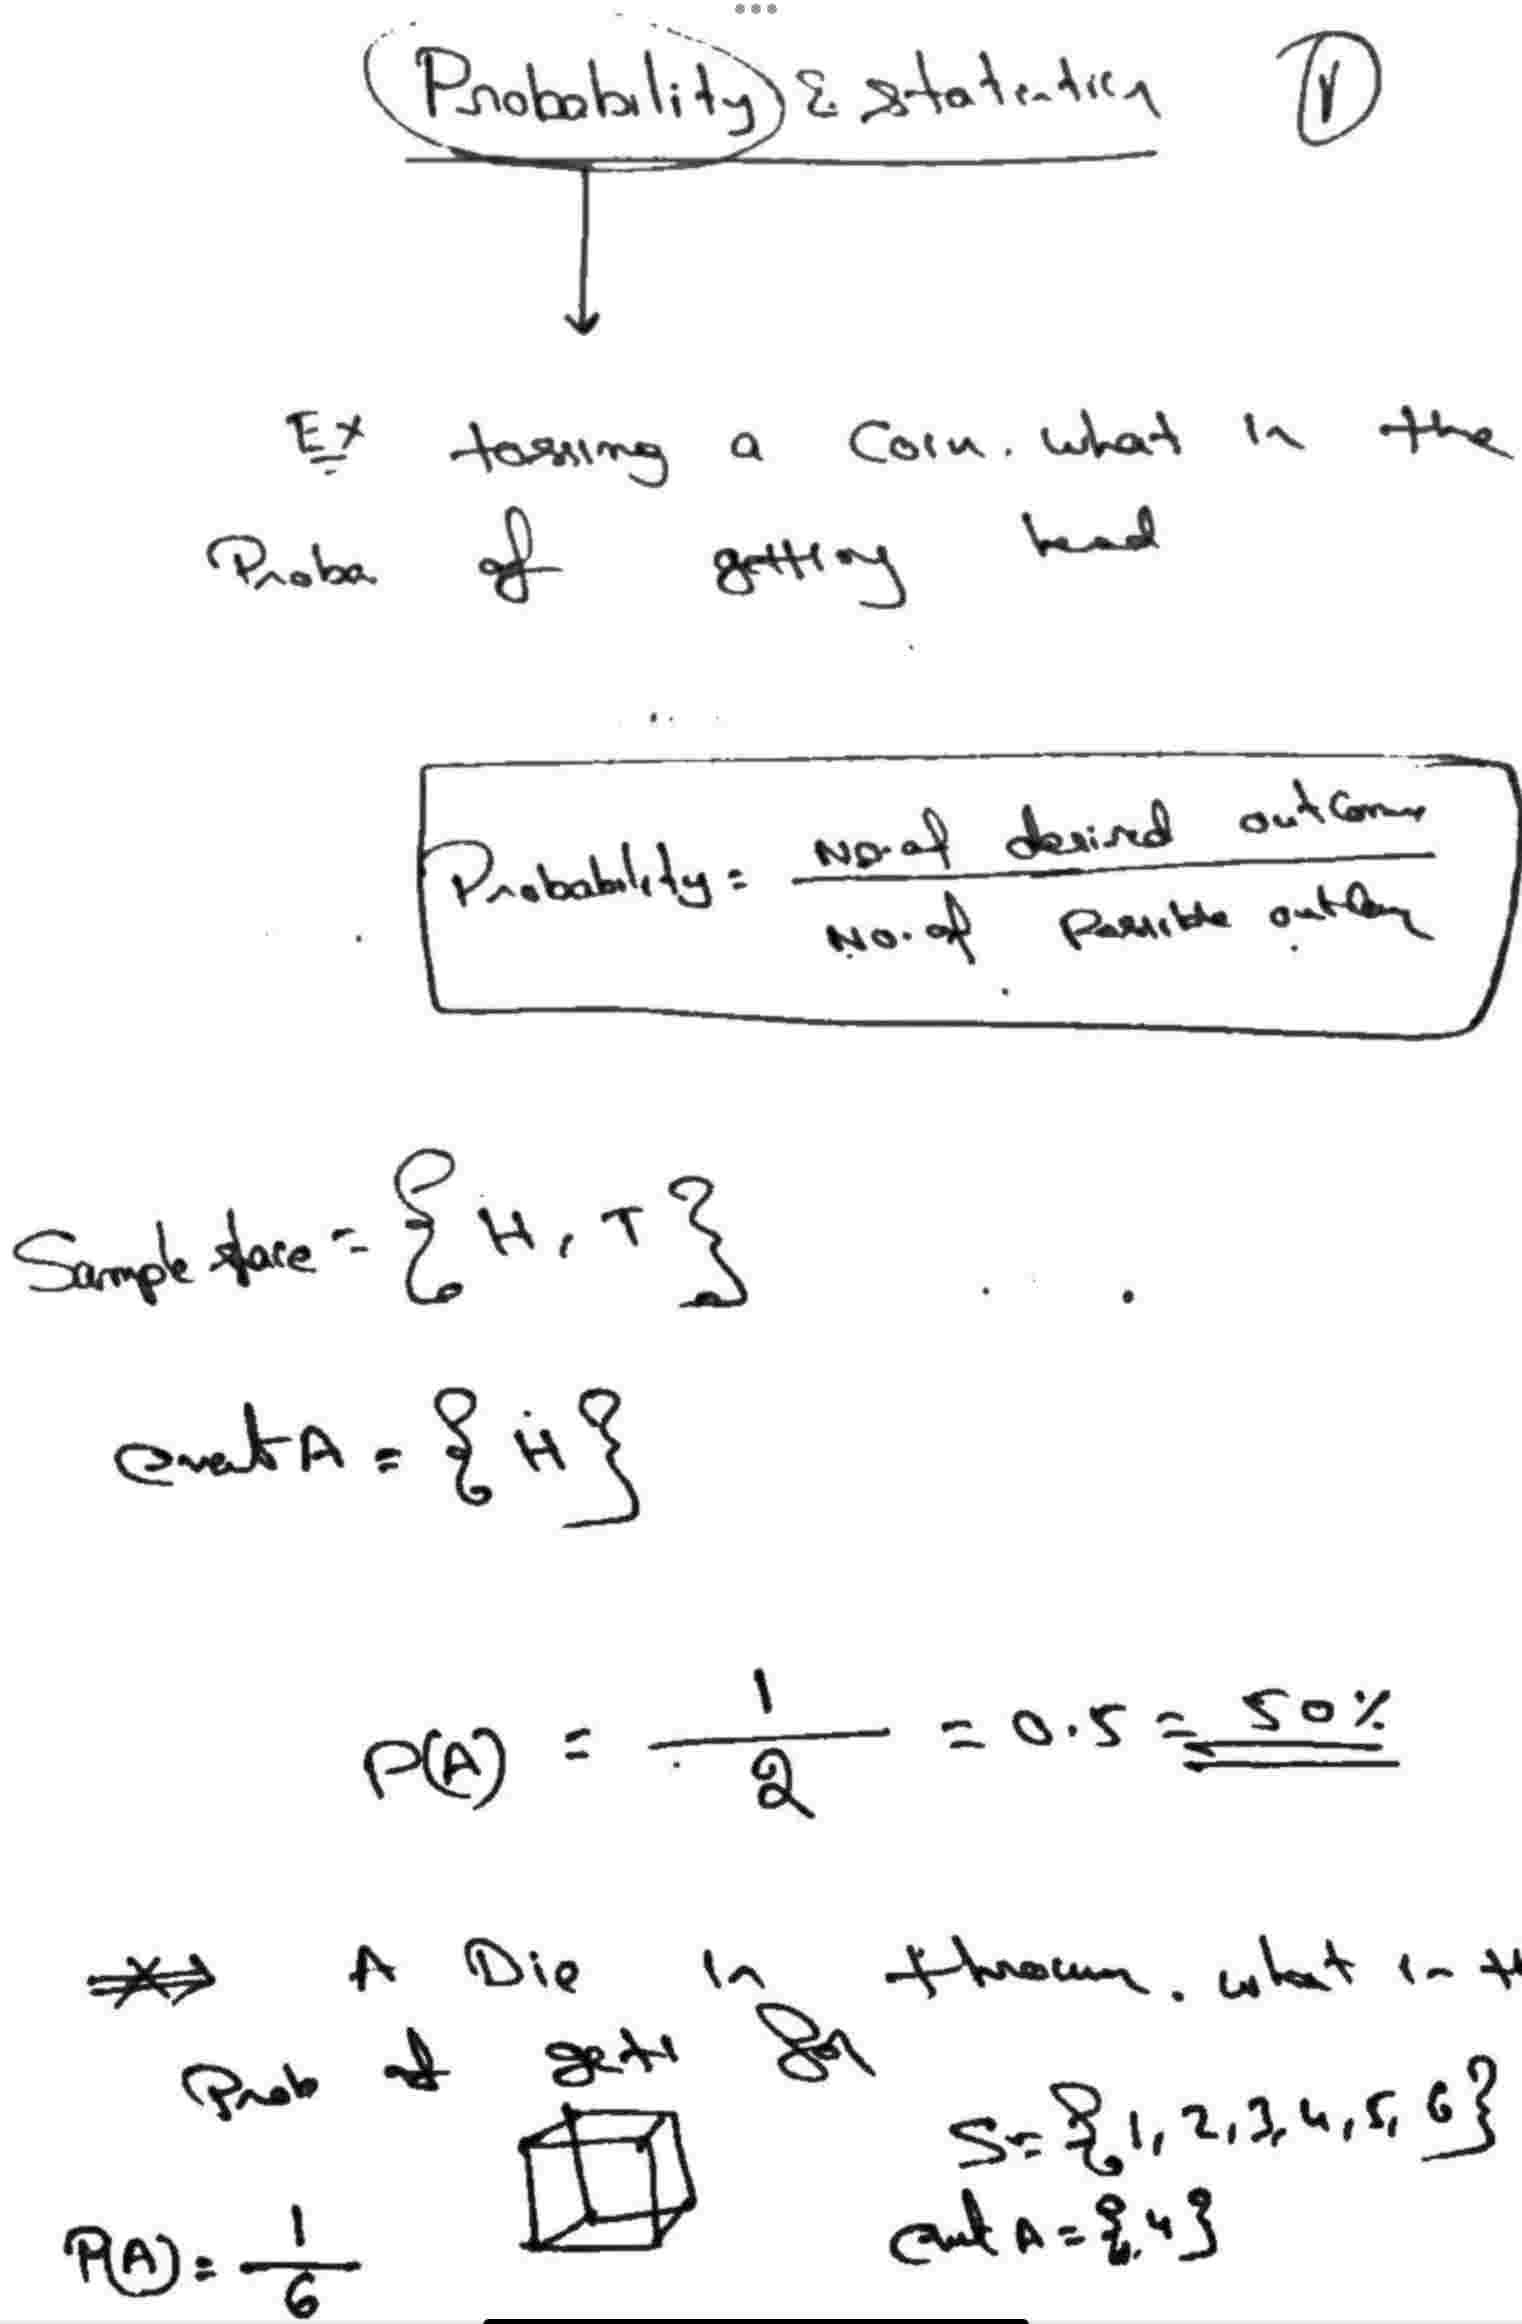 Probability & Statistics
Ex tossing a Coin. what is the
Proba of getting head
Probability = No. of desired outcomes
No. of Possible outcomes
Sample space = { H, T }
event A = { H }
P(A) = 1/2 = 0.5 = 50%
A Die is thrown. what is th
Prob of getti for
S = { 1, 2, 3, 4, 5, 6 }
event A = { 4 }
P(A) = 1/6